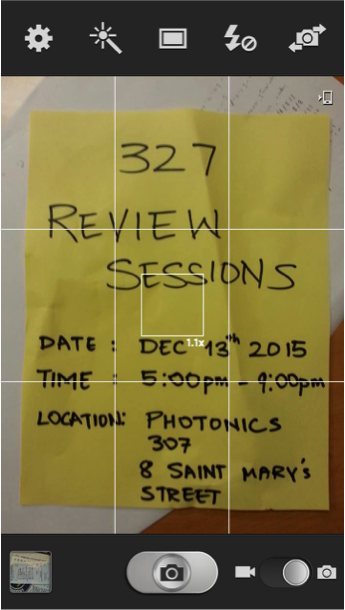 327
REVIEW
SESSIONS
1.1x
DATE : DEC 13th 2015
TIME : 5:00pm - 9:00pm
LOCATION: PHOTONICS
307
8 SAINT MARY's
STREET